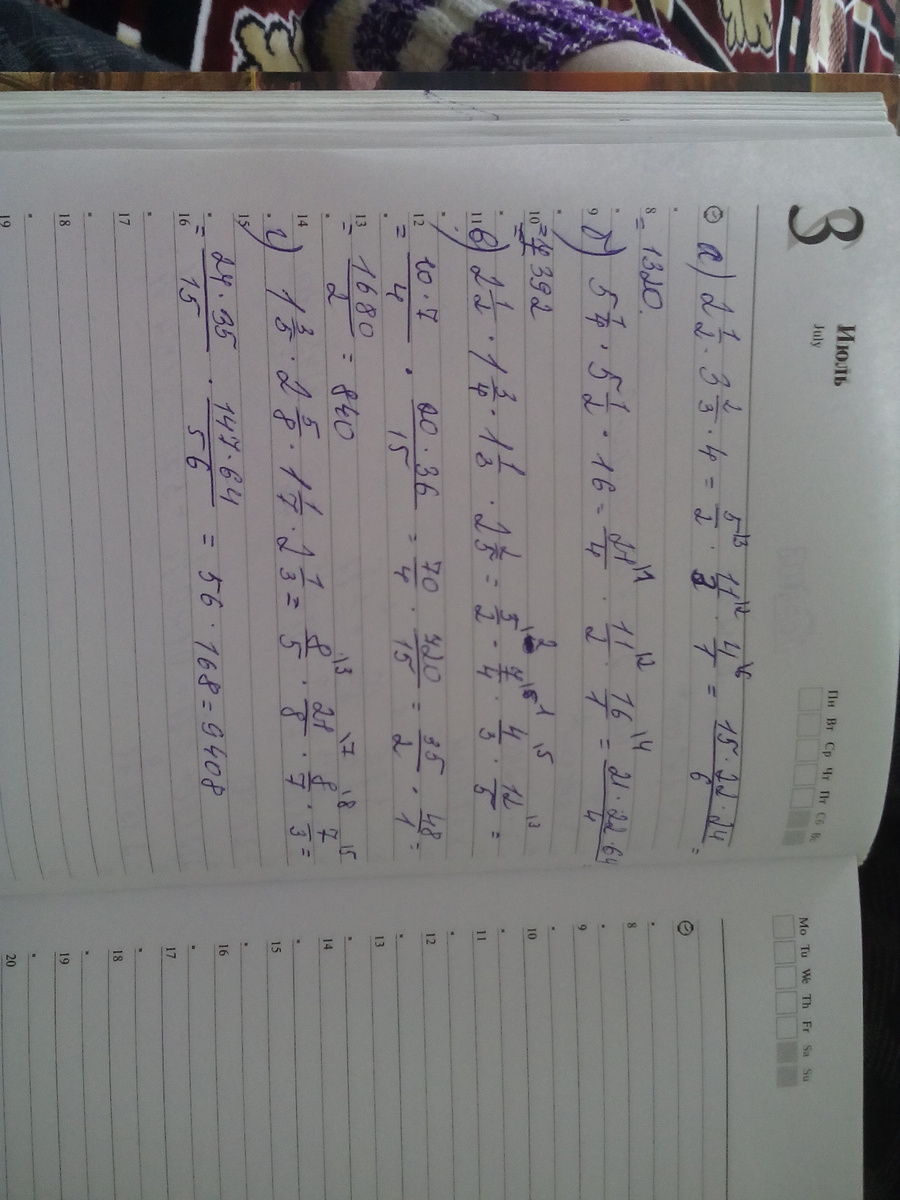 3
Июль
July
Пн Вт Ср Чт Пт Сб Вс
а) 2 1/2 · 3 2/3 · 4 = 5\3/2 · 11\2/3 · 4\6/1 = 15·22·24/6 =
8 = 1320.
9 б) 5 1/4 · 5 1/2 · 16 = 21\1/4 · 11\2/2 · 16\4/1 = 21·22·64/4
10 = 392
11 в) 2 1/2 · 1 3/4 · 1 1/3 · 2 2/5 = 5/2 · 7/4 · 4/3 · 12/5 =
12 = 10·7/4 · 20·36/15 = 70/4 · 720/15 = 35/2 · 48/1 =
13 = 1680/2 = 840
14 г) 1 3/5 · 2 5/8 · 1 1/7 · 2 1/3 = 8\3/5 · 21\7/8 · 8\8/7 · 7\5/3 =
15
16 = 24·35/15 · 147·64/56 = 56 · 168 = 9408
17
18
19
Mo Tu We Th Fr Sa Su
8
9
10
11
12
13
14
15
16
17
18
19
20